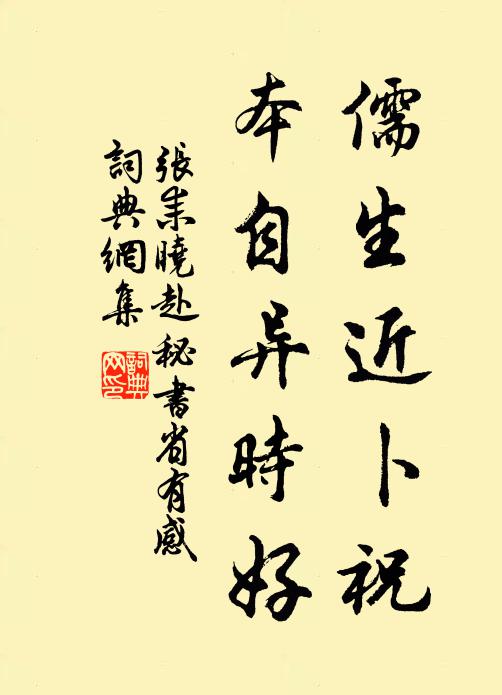 儒生近卜祝
本自异時好
張耒曉赴秘書省有感
詞典網集
詞典
网印